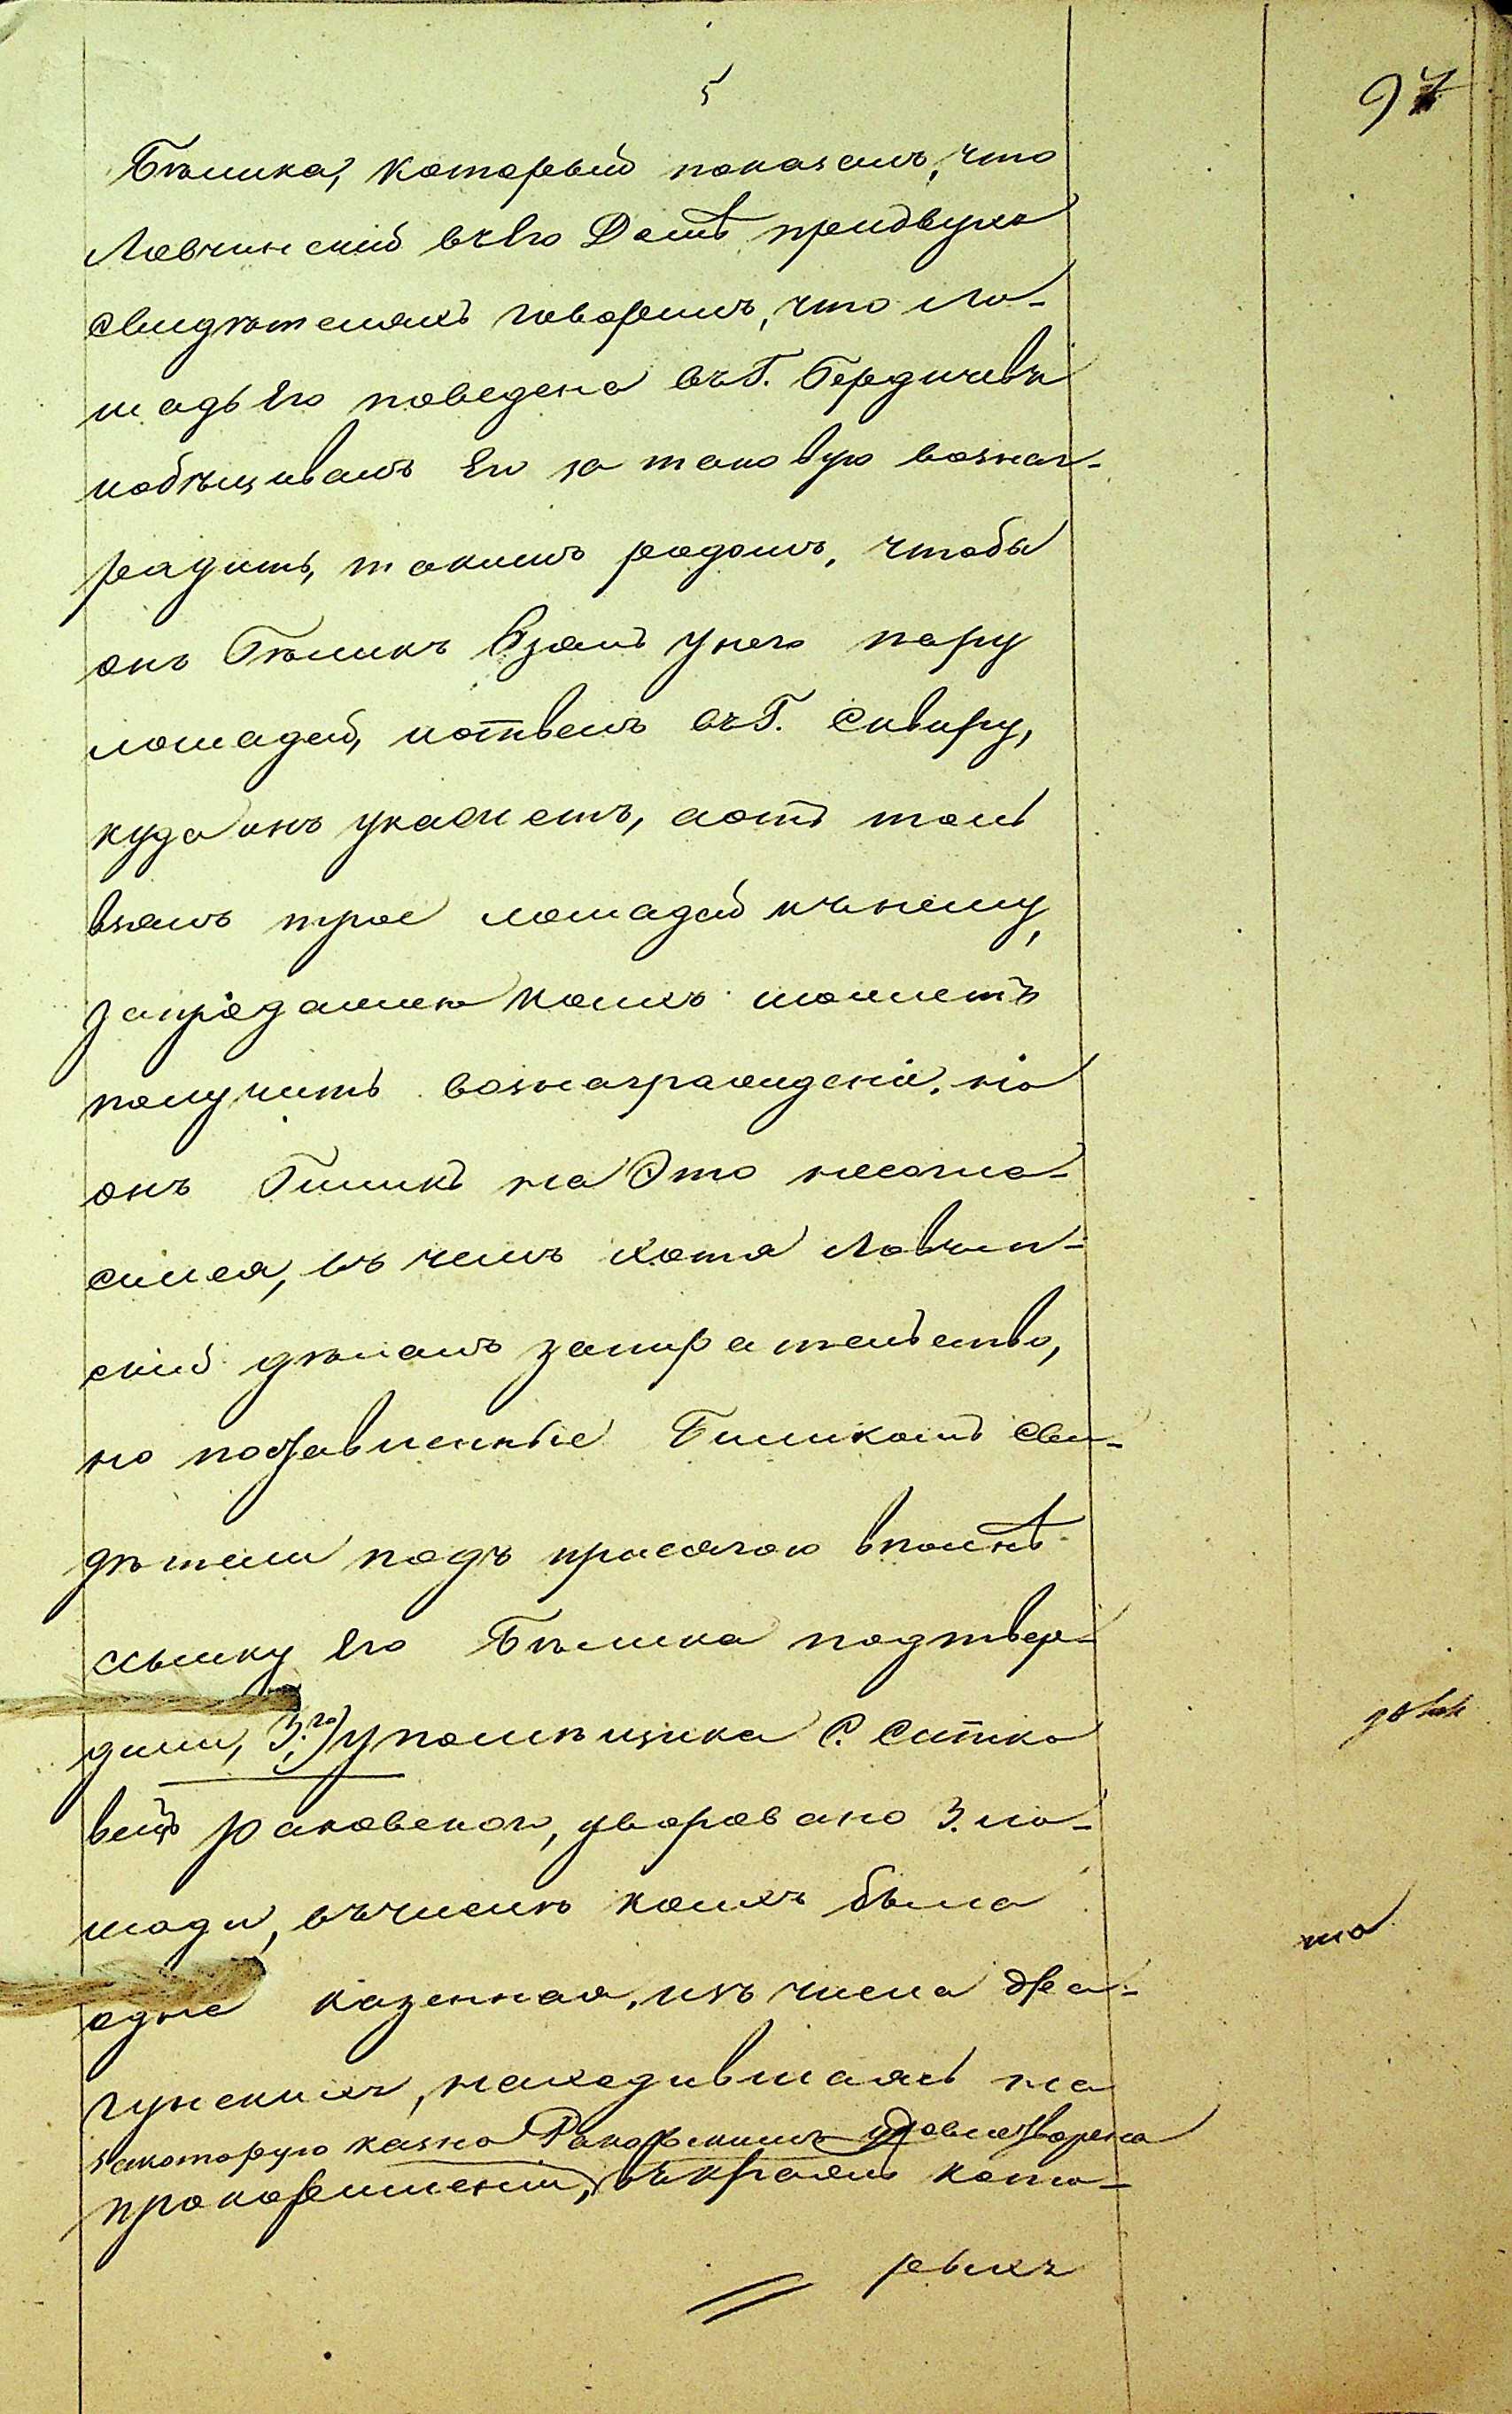 5
97
Бѣлика, который показалъ, что
Ловчинскій въ Его Домѣ придвухъ
свидѣтеляхъ говорилъ, что ло-
шадь Его поведена въ Г. Бердичевъ
иобѣщивалъ Его за таковую вознаг-
радить, такимъ родомъ, чтобы
онъ Бѣликъ взялъ унего пару
лошадей, иотвелъ въ Г. Сквиру,
куда онъ укажетъ, аотъ толь
взялъ трое лошадей къ нему,
запроданею коихъ можетъ
получить вознагражденіи, но
онъ Биликъ на Это несогла-
сился, въ чемъ хотя Ловчин-
скій дѣлалъ запирательство,
но поставленные Биликомъ сви-
дѣтели подъ присягою вполнѣ
ссылку Его Бѣлика подтвер-
дили, 3.го) упомѣщика С. Ситко
вецъ Раковского, уворовано 3. ло-
шади, въчислѣ коихъ была
одна казенная, изъ числа дра-
гунскихъ, находившаясь на
закоторую казна Раковскимъ удовлетворена
прокормленіи, въкражѣ кото-
рыхъ
ша